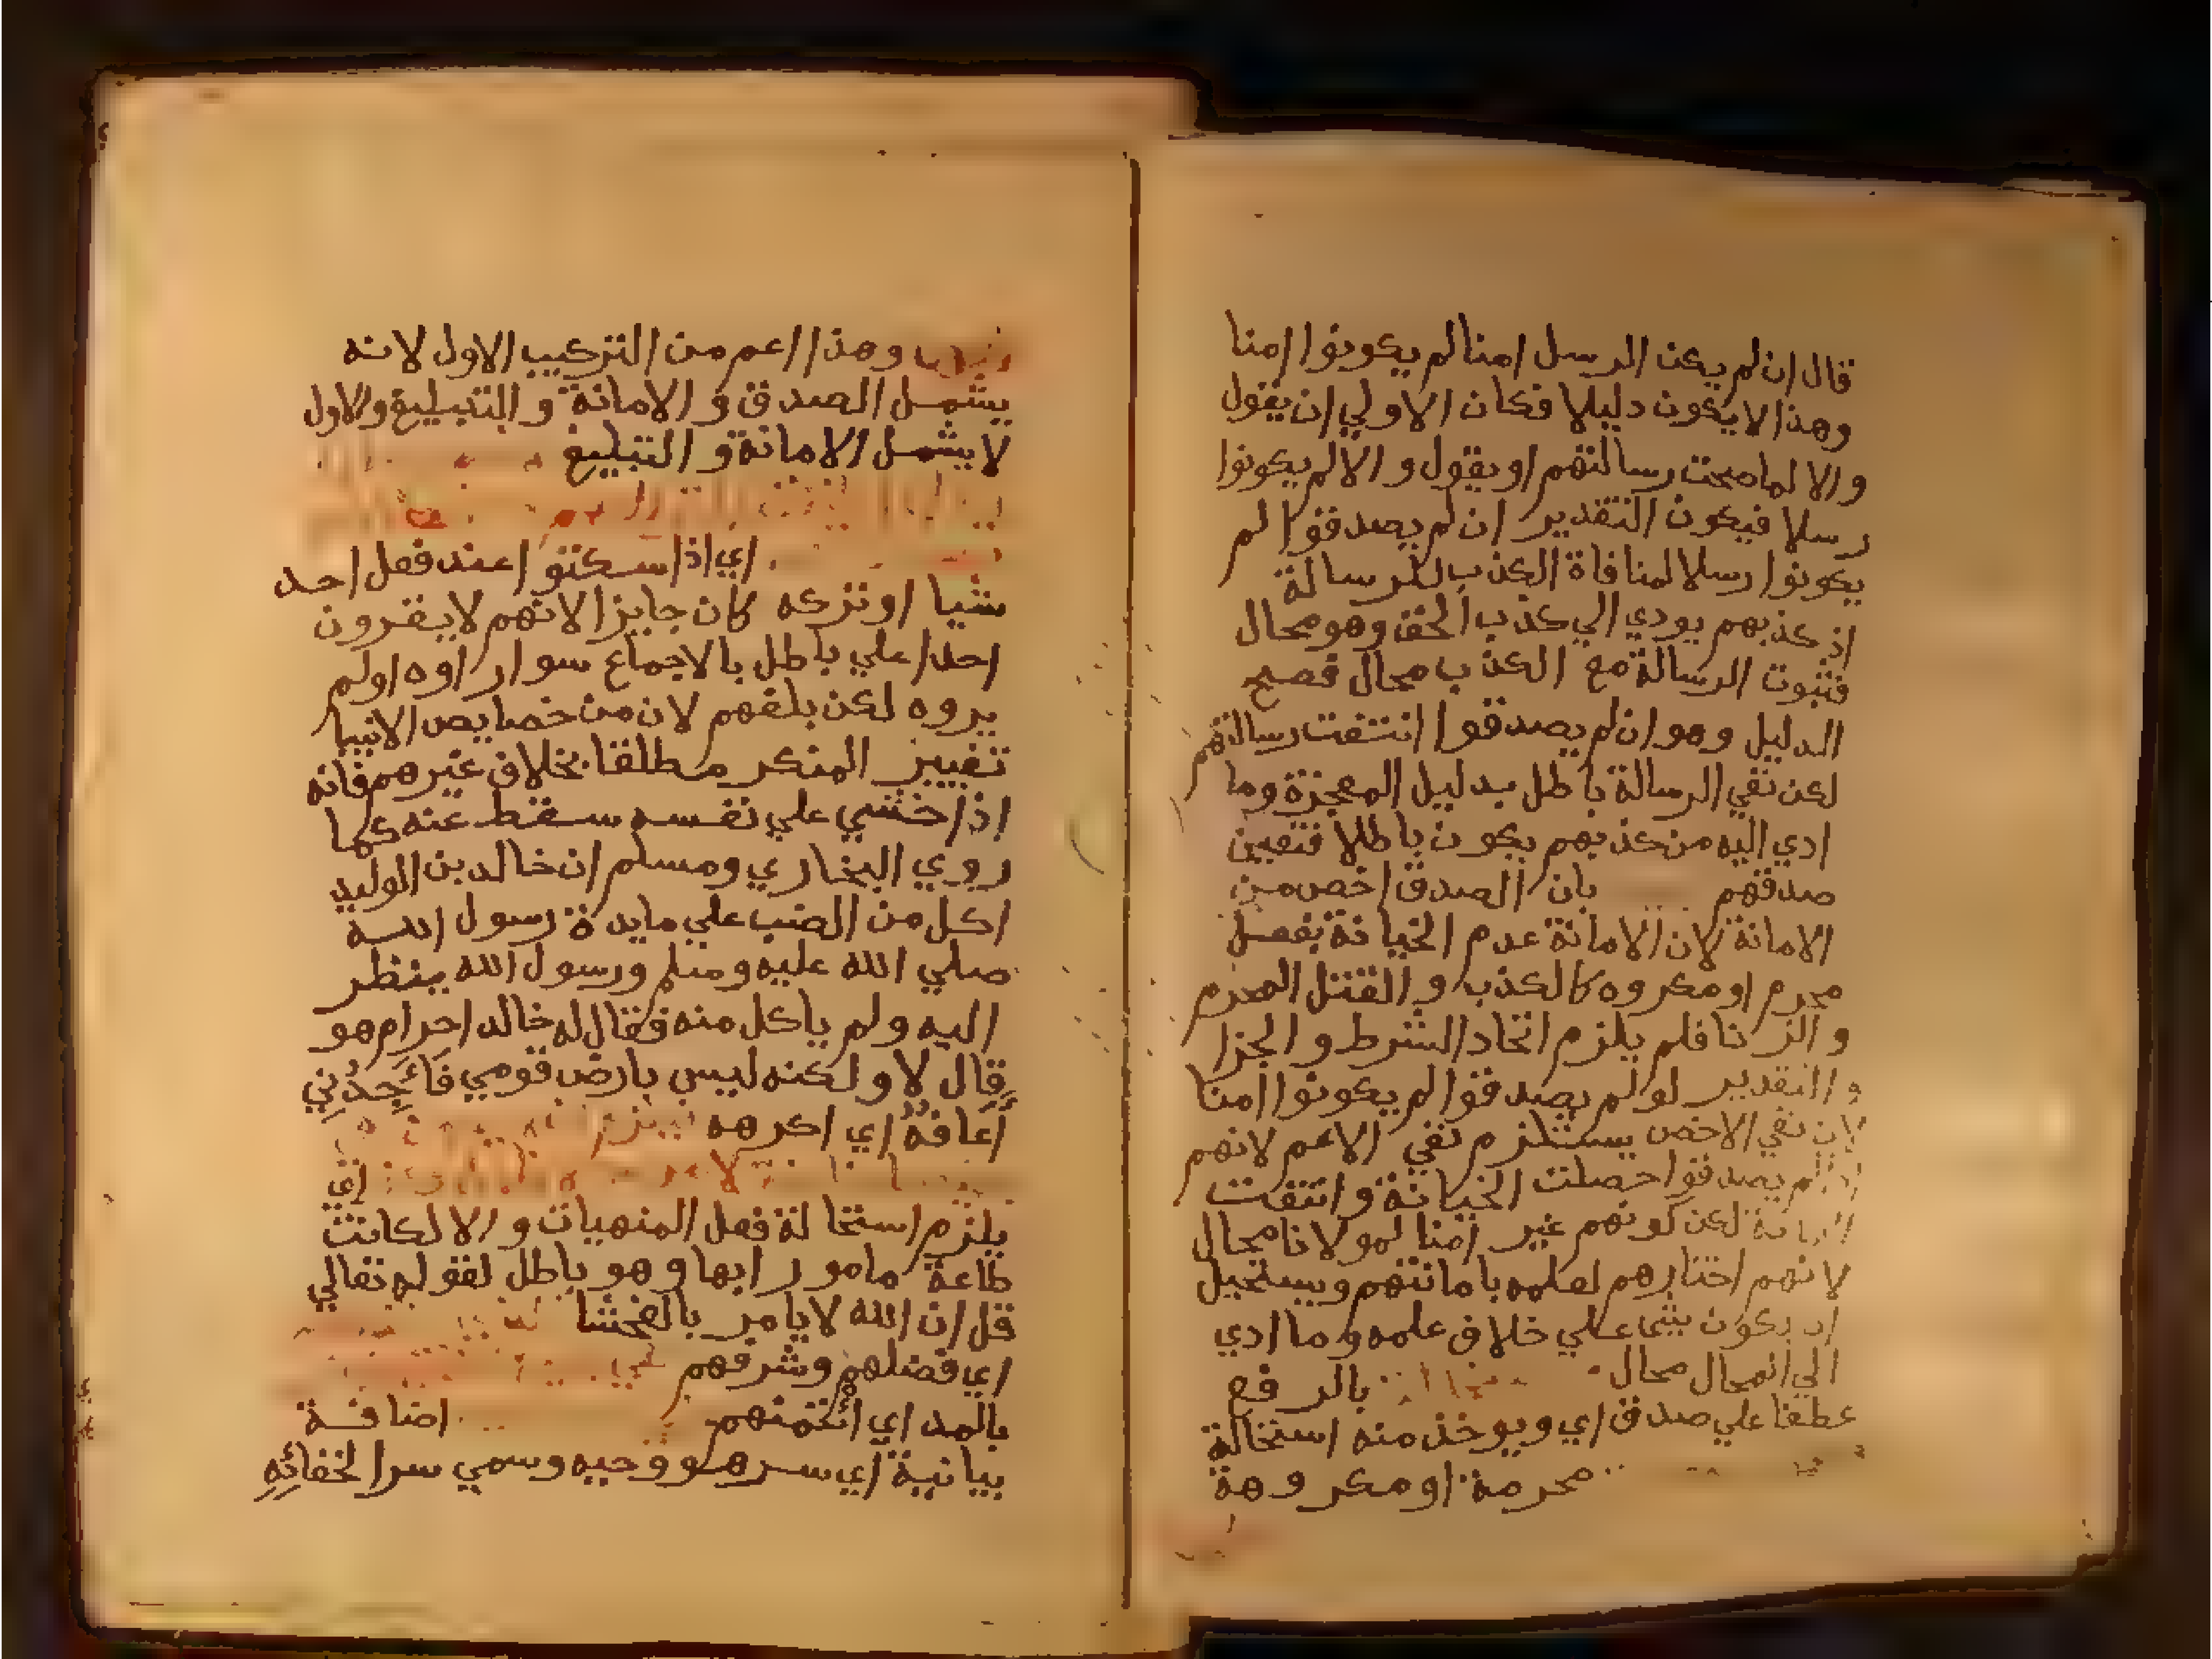 قال ان لم يكن الرسل امنا لم يكونوا امنا
وهذا لا يكون دليلا فكان الاولي ان يقول
والا لما صحت رسالتهم او يقول والا لم يكونوا
رسلا فيكون التقدير ان لم يصدقوا لم
يكونوا رسلا لمنافاة الكذب للرسالة
اذ كذبهم يودي الي كذب الحق وهو محال
فثبوت الرسالة مع الكذب محال فصح
الدليل وهو ان لم يصدقوا انتفت رسالتهم
لكن نفي الرسالة باطل بدليل المعجزة وما
ادي اليه من كذبهم يكون باطلا فتعين
صدقهم بان الصدق اخص من
الامانة لان الامانة عدم الخيانة بفعل
محرم او مكروه كالكذب والقتل المحرم
والزنا فلم يلزم اتحاد الشرط والجزا
والتقدير لو لم يصدقوا لم يكونوا امنا
لان نفي الاخص يستلزم نفي الاعم لانهم
لم يصدقوا حصلت الخيانة وانتفت
لكن كونهم غير امنا لمولانا محال
لانهم اختارهم لعلمه بامانتهم ويستحيل
ان يكون شي علي خلاف علمه وما ادي
الي المحال محال بالرفع
عطفا علي صدق اي ويوخذ منه استحالة
محرمة او مكروهة
وهذا اعم من التركيب الاول لانه
يشمل الصدق والامانة والتبليغ والاول
لا يشمل الامانة والتبليغ
اي اذا سكتوا عند فعل احد
شيا او تركه كان جايزا لانهم لا يقرون
احدا علي باطل بالاجماع سوا راوه او لم
يروه لكن بلغهم لان من خصايص الانبيا
تغيير المنكر مطلقا بخلاف غيرهم فانه
اذا خشي علي نفسه سقط عنه كما
روي البخاري ومسلم ان خالد بن الوليد
اكل من الضب علي مايدة رسول الله
صلي الله عليه وسلم ورسول الله ينظر
اليه ولم ياكل منه فقال له خالد احرام هو
قال لا ولكنه ليس بارض قومي فَأَجِدُنِي
أَعَافُهُ اي اكرهه
اي
يلزم استحالة فعل المنهيات والا لكانت
طاعة مامورا بها وهو باطل لقوله تعالي
قل ان الله لا يامر بالفحشا
اي فضلهم وشرفهم
بالمد اي ائتمنهم اضافة
بيانية اي سر هو وحيه وسمي سرا لخفائه